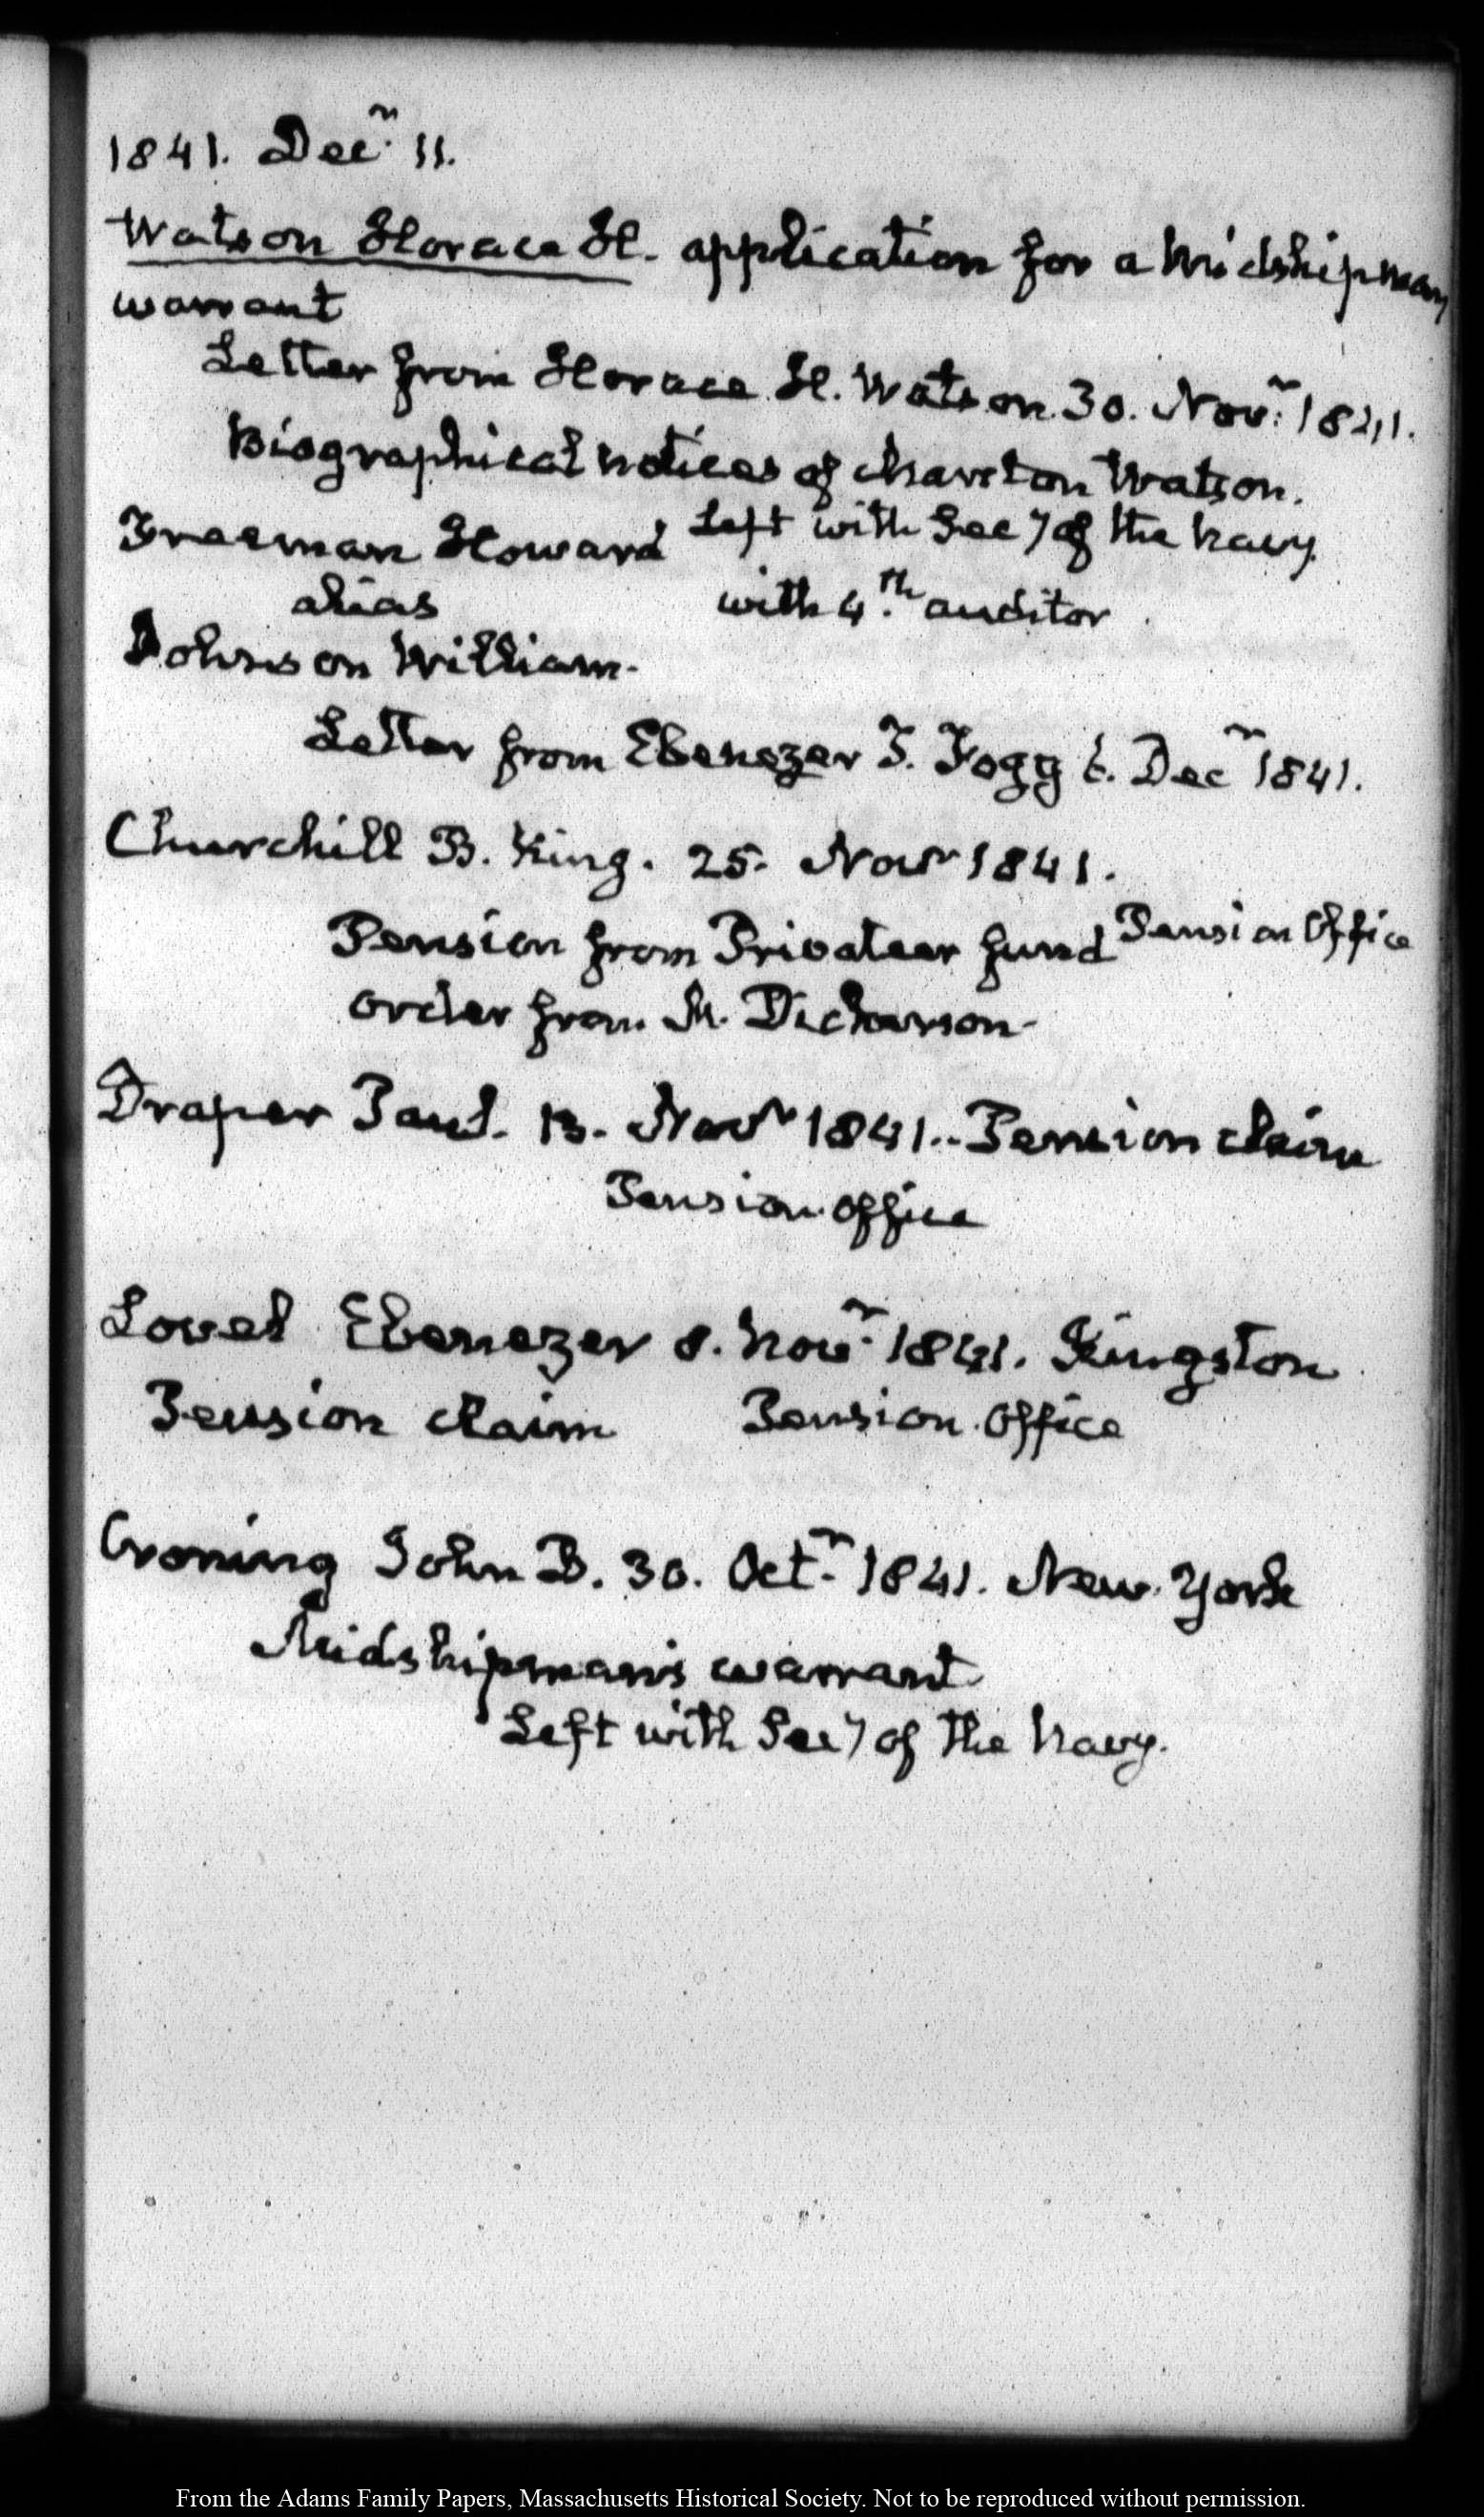 1841. Decr. 11.
Watson Horace H. application for a Midshipman
warrant
Letter from Horace H. Watson 30. Novr. 1841.
Biographical notices of Marston Watson.
Freeman Howard Left with Secy of the Navy
alias with 4.th auditor
Johnson William.
Letter from Ebenezer T. Fogg 6. Decr 1841.
Churchill B. King. 25. Novr 1841.
Pension from Privateer fund Pension Office
order from M. Dickerson
Draper Paul. 13. Novr 1841. Pension claim
Pension office
Lovel Ebenezer 8. Novr. 1841. Kingston
Pension claim Pension Office
Croning John B. 30. Octr. 1841. New York
Midshipman's warrant
Left with Secy of the Navy.
From the Adams Family Papers, Massachusetts Historical Society. Not to be reproduced without permission.